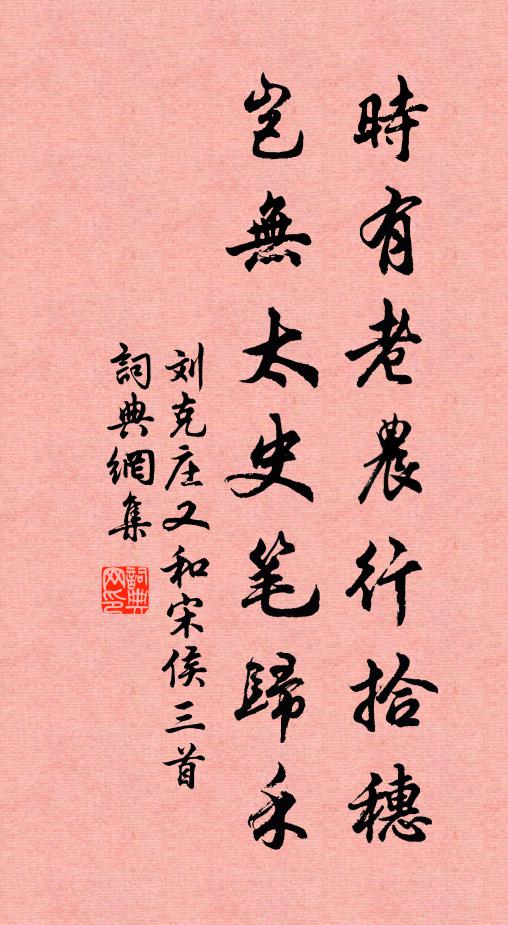 時有老農行拾穗
豈無太史笔歸禾
刘克庄又和宋侯三首
詞典網集
詞典网印